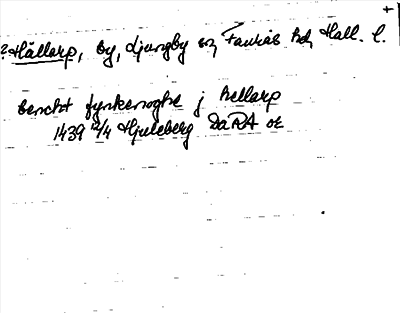 +
? Hällarp, by, Ljungby sn, Faurås hd, Hall. l.
bencht fynkenoghe j hellarp
1439 12/4 Hjuleberg DaRA or